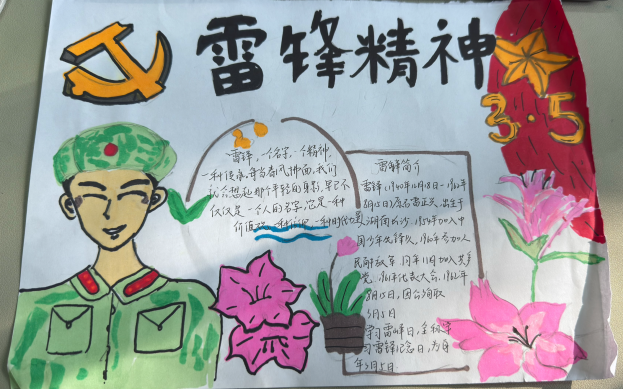 雷锋精神
3·5
雷锋,一个名字,一个精神,
一种传承,每当春风拂面,我们
就会想起那个年轻的身影,早已不
仅仅是一个人的名字,它是一种
价值观,一种
雷锋简介
雷锋,(1940年12月18日-1962年
8月15日)原名雷正兴,出生于
湖南长沙,1954年加入中
国少年先锋队,1960年参加人
民解放军,同年11月加入共产
党,1961年 代表大会,1962年
8月15日,因公殉职
3月5日
学习雷锋日,全称学
习雷锋纪念日,为每
年3月5日